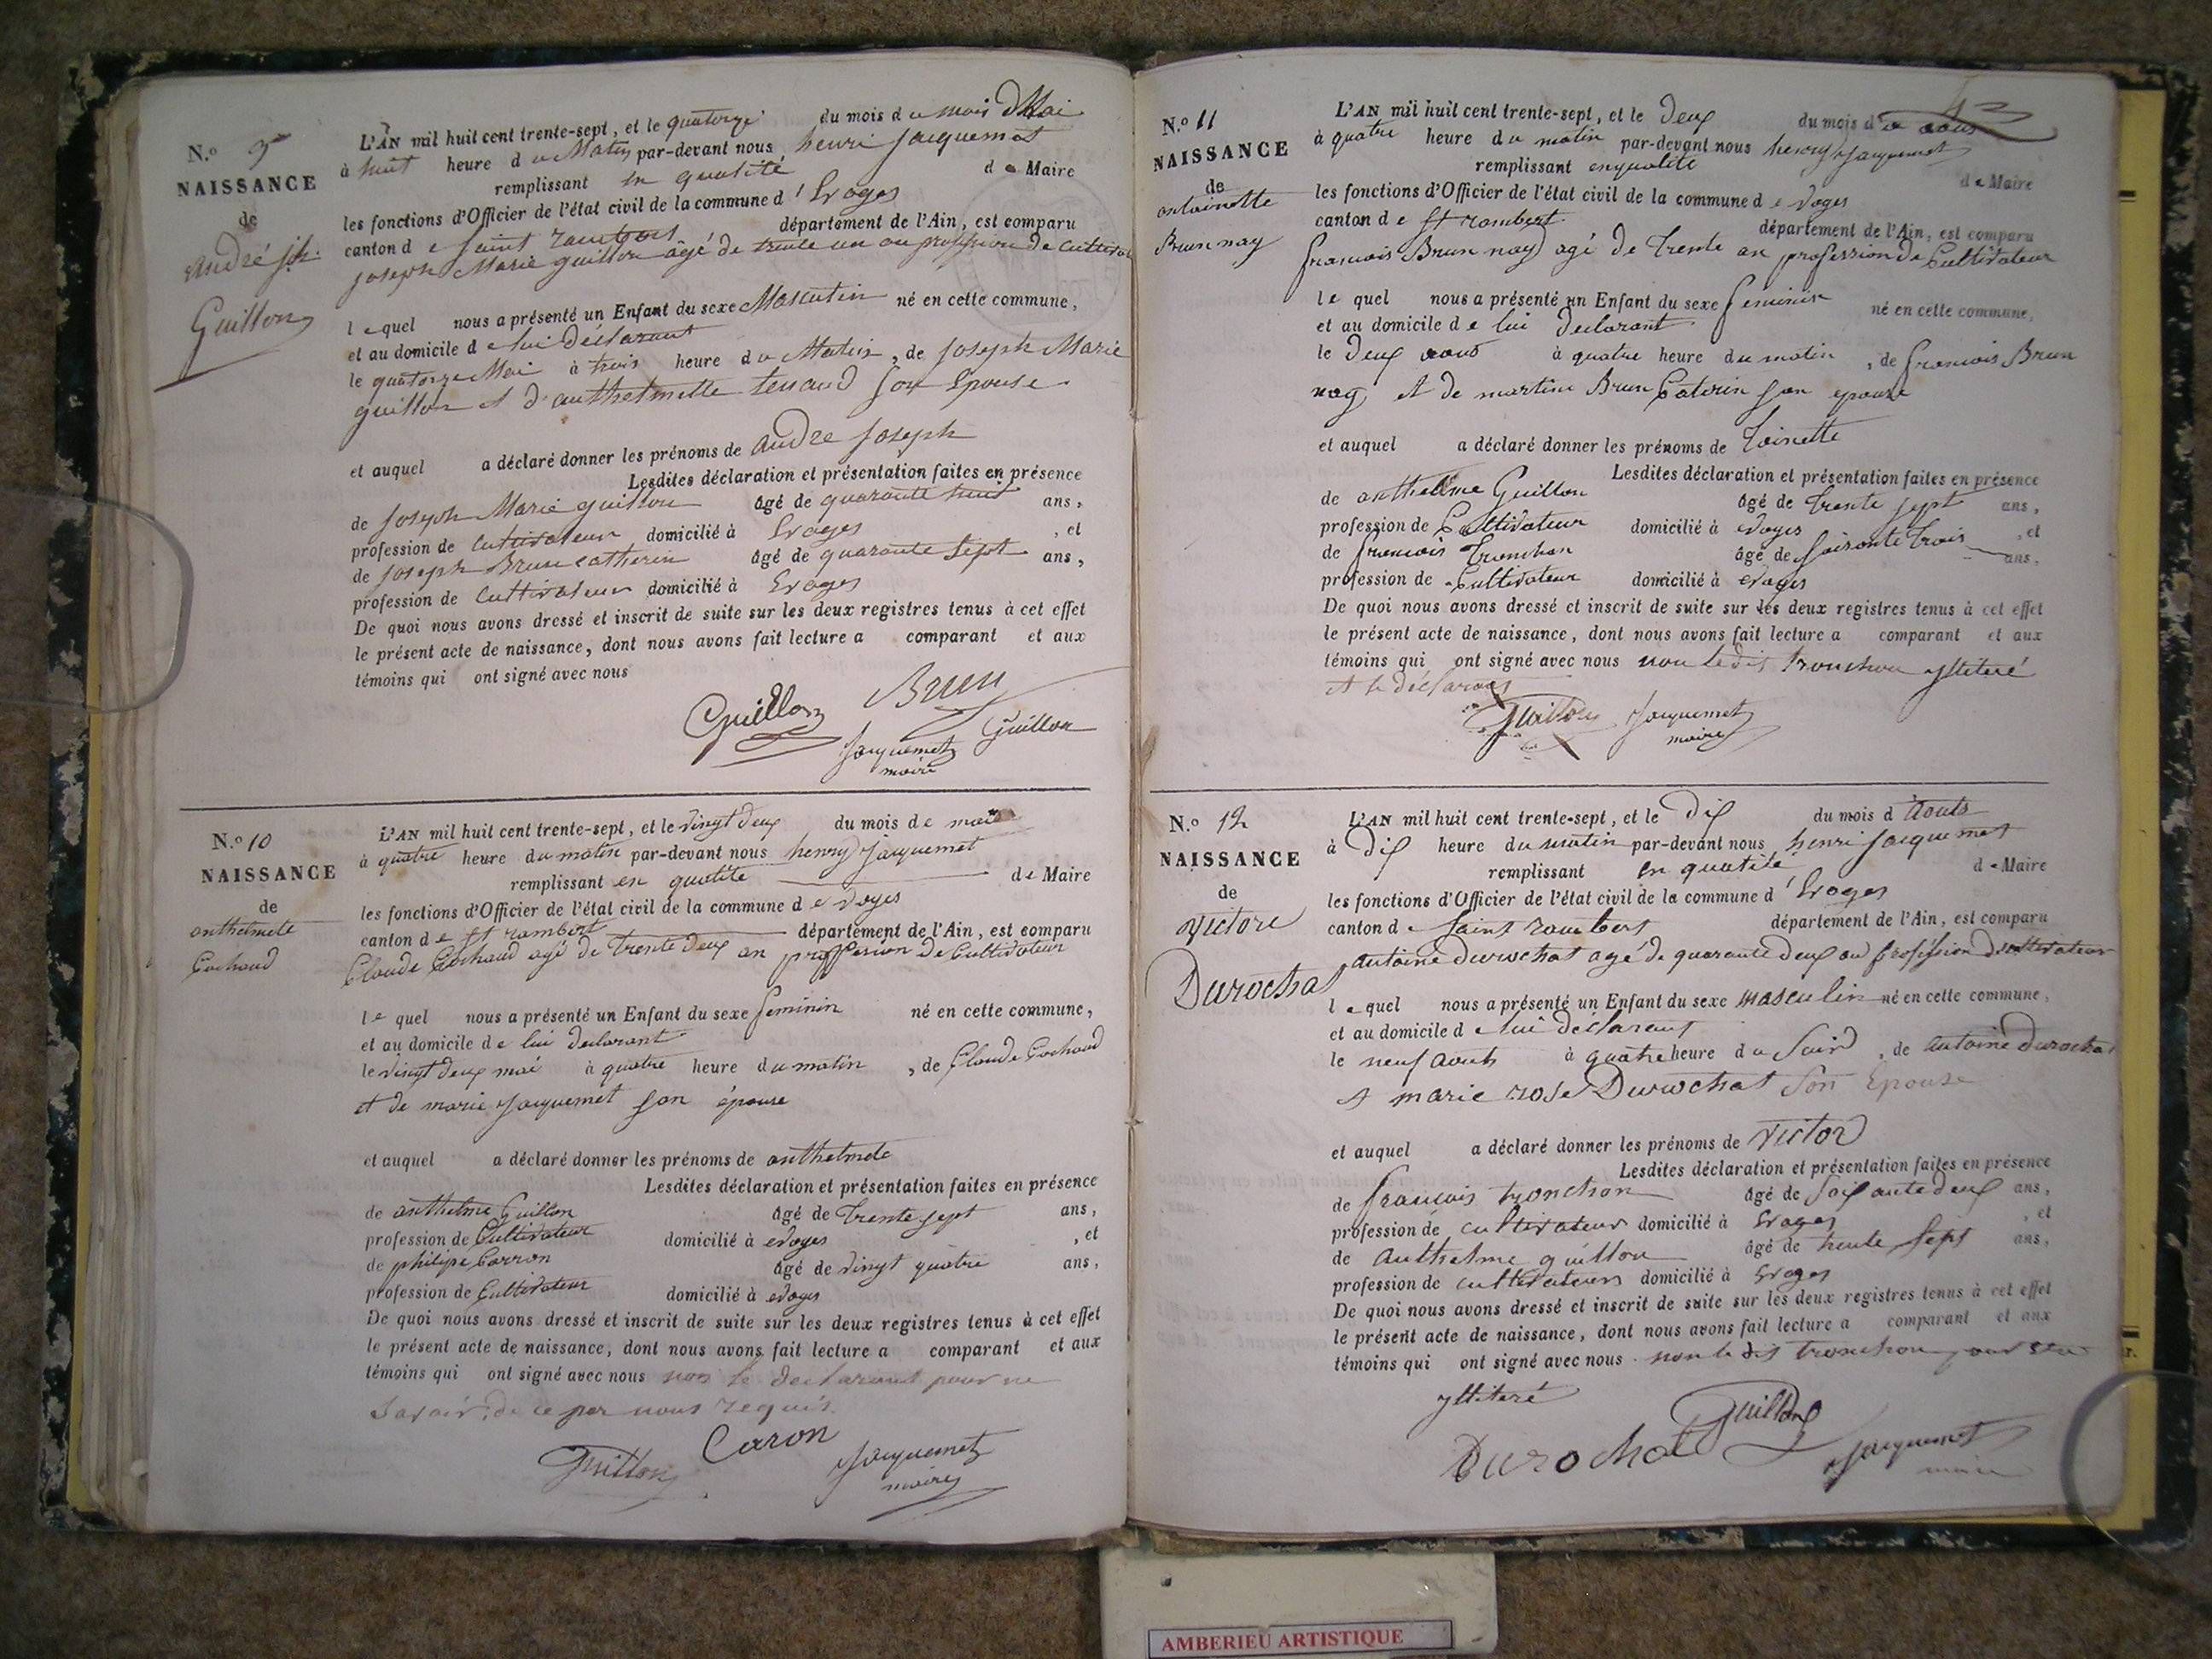 N.º 9
NAISSANCE
de
André jh.
Guillon
L'AN mil huit cent trente-sept, et le quatorze du mois du mois d Mai
à huit heure du Matin par-devant nous henri jacquemet
remplissant en qualité de Maire
les fonctions d'Officier de l'état civil de la commune d'Evoges
canton de saint rambert département de l'Ain, est comparu
joseph Marie guillon âgé de trente un an profession de cultivateur
lequel nous a présenté un Enfant du sexe Masculin né en cette commune,
et au domicile de lui déclarant
le quatorze Mai à trois heure du Matin, de joseph Marie
guillon et d'anthelmette tenand son Epouse
et auquel a déclaré donner les prénoms de andre joseph
Lesdites déclaration et présentation faites en présence
de joseph Marie guillon âgé de quarante huit ans,
profession de cultivateur domicilié à Evoges, et
de joseph Brun catherin âgé de quarante sept ans,
profession de cultivateur domicilié à Evoges
De quoi nous avons dressé et inscrit de suite sur les deux registres tenus à cet effet
le présent acte de naissance, dont nous avons fait lecture a comparant et aux
témoins qui ont signé avec nous
Guillon Brun
Jacquemet Guillon
maire
N.º 10
NAISSANCE
de
anthelmete
Cochaud
L'AN mil huit cent trente-sept, et le vingt deux du mois de mai
à quatre heure du matin par-devant nous henry jacquemet
remplissant en qualité de Maire
les fonctions d'Officier de l'état civil de la commune de evoges
canton de st rambert département de l'Ain, est comparu
Claude Cochaud agé de trente deux an proffession de Cultivateur
lequel nous a présenté un Enfant du sexe feminin né en cette commune,
et au domicile de lui declarant
le vingt deux mai à quatre heure du matin, de Claude Cochaud
et de marie jacquemet son épouse
et auquel a déclaré donner les prénoms de anthelmete
Lesdites déclaration et présentation faites en présence
de anthelme Guillon âgé de trente sept ans,
profession de Cultivateur domicilié à evoges, et
de philipe Carron âgé de vingt quatre ans,
profession de Cultivateur domicilié à evoges
De quoi nous avons dressé et inscrit de suite sur les deux registres tenus à cet effet
le présent acte de naissance, dont nous avons fait lecture a comparant et aux
témoins qui ont signé avec nous non le declarant pour ne
savoir, de ce par nous requis.
Guillon Caron Jacquemet
maire
N.º 11
NAISSANCE
de
antoinette
Brun nay
L'AN mil huit cent trente-sept, et le deux du mois d'aous
à quatre heure du matin par-devant nous henry jacquemet
remplissant en qualité de Maire
les fonctions d'Officier de l'état civil de la commune de evoges
canton de st rambert département de l'Ain, est comparu
francois Brun nay agé de trente an profession de Cultivateur
lequel nous a présenté un Enfant du sexe feminin né en cette commune,
et au domicile de lui declarant
le deux aous à quatre heure du matin, de francois Brun
nay et de martine Brun Caterin son epouse
et auquel a déclaré donner les prénoms de toinette
Lesdites déclaration et présentation faites en présence
de anthelme Guillon âgé de trente sept ans,
profession de Cultivateur domicilié à evoges, et
de francois Tronchon âgé de soixante trois ans,
profession de Cultivateur domicilié à evoges
De quoi nous avons dressé et inscrit de suite sur les deux registres tenus à cet effet
le présent acte de naissance, dont nous avons fait lecture a comparant et aux
témoins qui ont signé avec nous non le dit tronchon ylliteré
et le déclarant
Guillon Jacquemet
maire
N.º 12
NAISSANCE
de
victore
Durochat
L'AN mil huit cent trente-sept, et le dix du mois d'aouts
à dix heure du matin par-devant nous henri jacquemet
remplissant en qualité de Maire
les fonctions d'Officier de l'état civil de la commune d'Evoges
canton de saint rambert département de l'Ain, est comparu
antoine durochat agé de quarante deux an profession de cultivateur
lequel nous a présenté un Enfant du sexe masculin né en cette commune,
et au domicile de lui declarent
le neuf aouts à quatre heure du soir, de antoine durochat
et marie rose Durochat son Epouse
et auquel a déclaré donner les prénoms de victor
Lesdites déclaration et présentation faites en présence
de francois tronchon âgé de soixante deux ans,
profession de cultivateur domicilié à Evoges, et
de anthelme guillon âgé de trente sept ans,
profession de cultivateur domicilié à Evoges
De quoi nous avons dressé et inscrit de suite sur les deux registres tenus à cet effet
le présent acte de naissance, dont nous avons fait lecture a comparant et aux
témoins qui ont signé avec nous non le dit tronchon pour etre
ylliteré
Guillon
Durochat Jacquemet
maire
AMBERIEU ARTISTIQUE